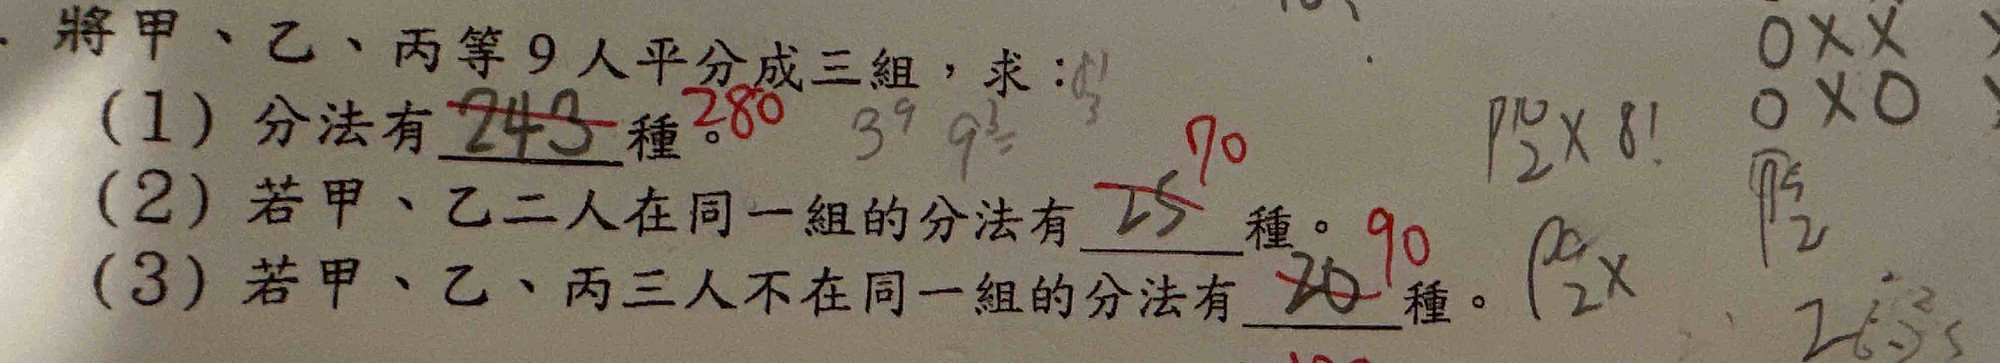 將甲、乙、丙等9人平分成三組，求：
(1) 分法有 243 種。280 3⁹ 9³
(2) 若甲、乙二人在同一組的分法有 25 種。70
(3) 若甲、乙、丙三人不在同一組的分法有 20 種。90
P¹⁰₂×8!
0××
0×0